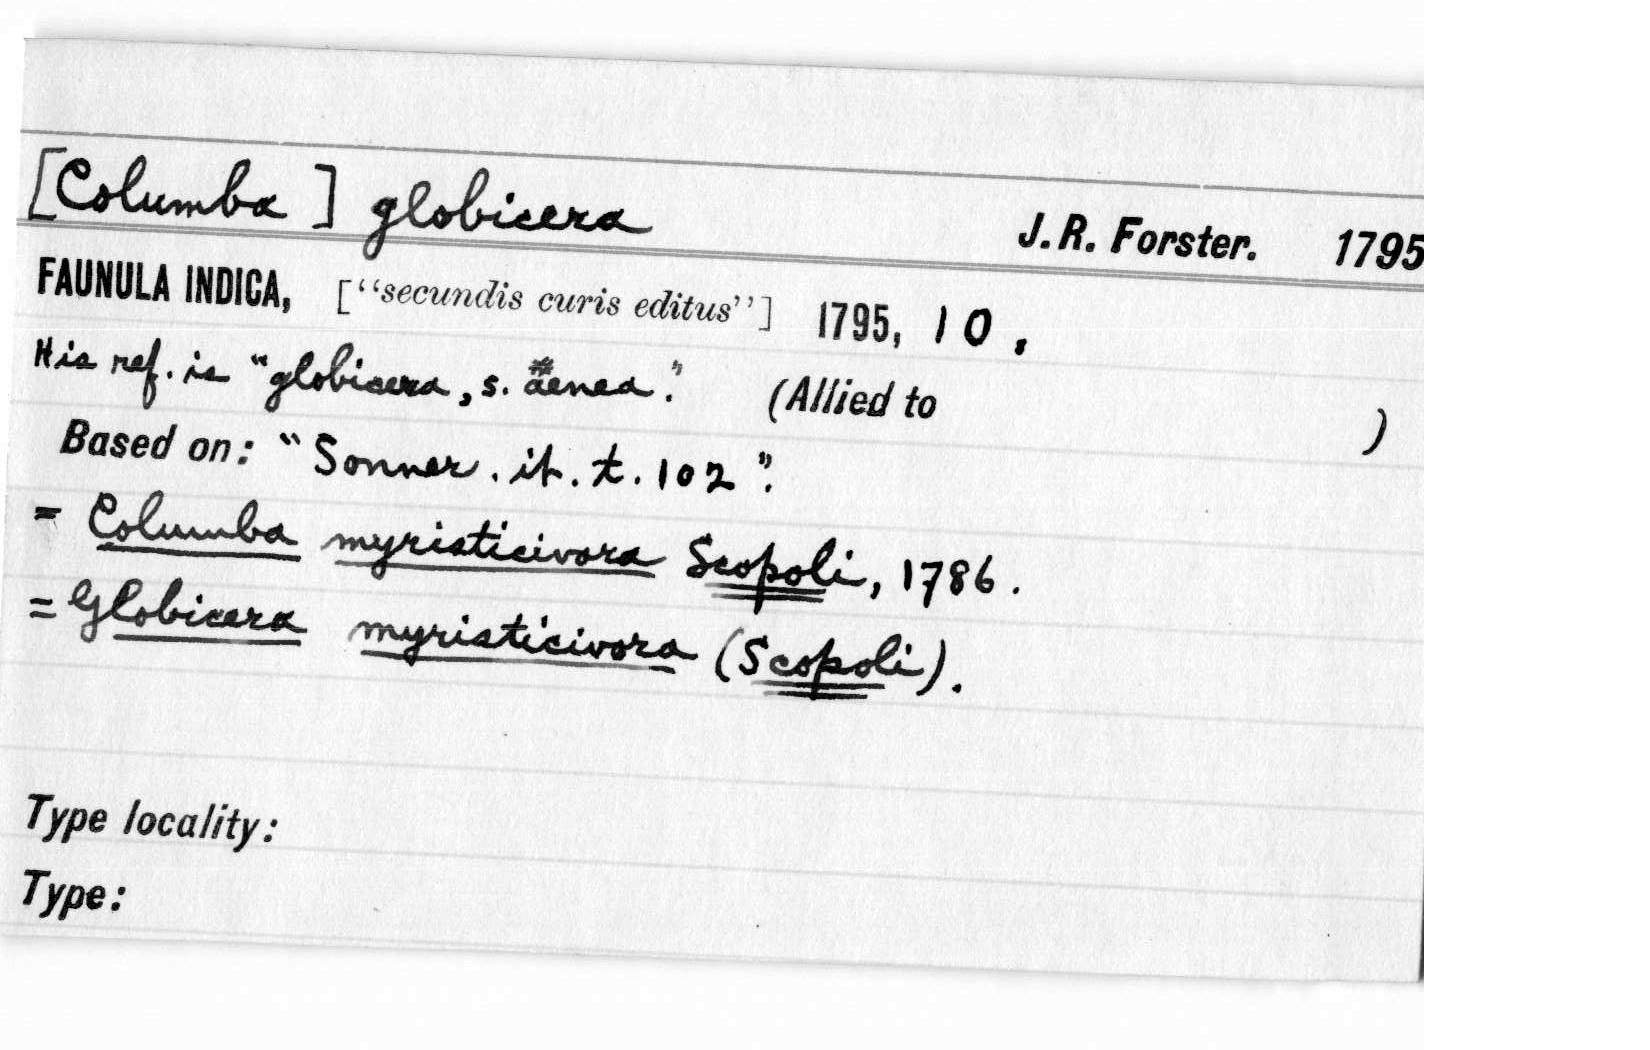 [Columba] globicera J. R. Forster. 1795
FAUNULA INDICA, ["secundis curis editus"] 1795, 10.
His ref. is "globicera, s. aenea." (Allied to )
Based on: "Sonner. it. t. 102".
= Columba myristicivora Scopoli, 1786.
= Globicera myristicivora (Scopoli).
Type locality:
Type: